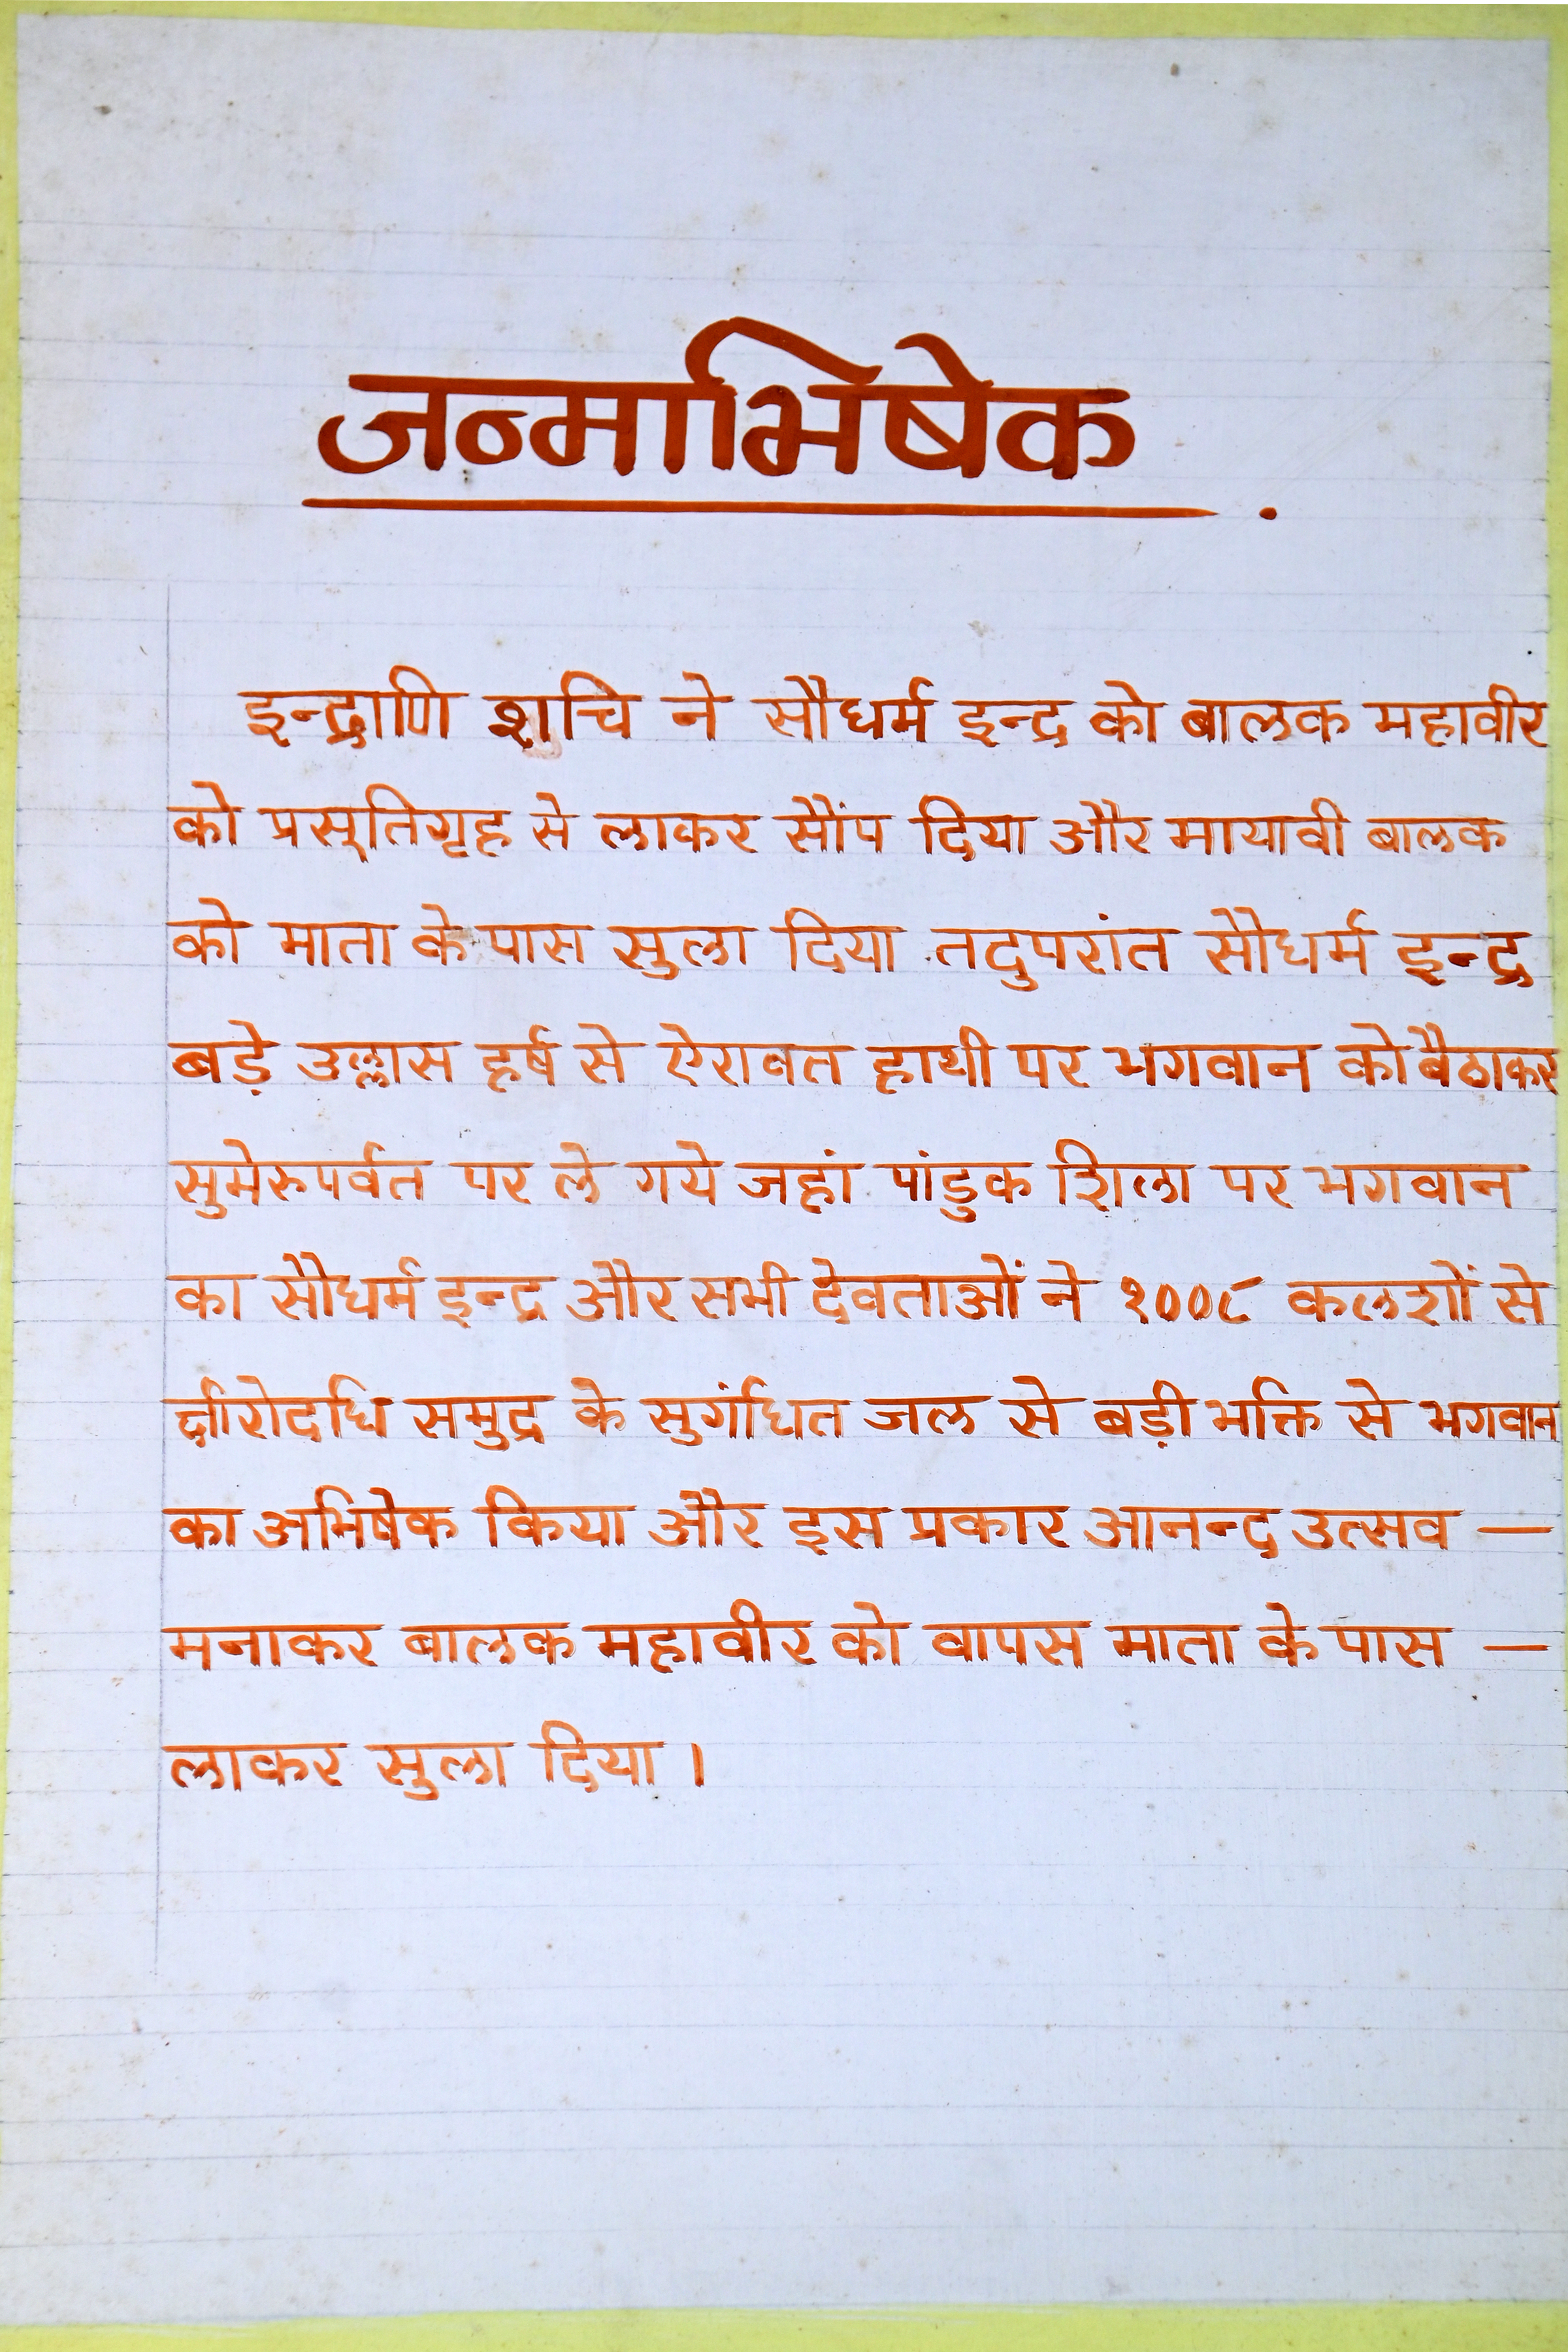 जन्माभिषेक .
इन्द्राणि शचि ने सौधर्म इन्द्र को बालक महावीर
को प्रसूतिगृह से लाकर सौंप दिया और मायावी बालक
को माता के पास सुला दिया तदुपरांत सौधर्म इन्द्र
बड़े उल्लास हर्ष से ऐरावत हाथी पर भगवान को बैठाकर
सुमेरुपर्वत पर ले गये जहां पांडुक शिला पर भगवान
का सौधर्म इन्द्र और सभी देवताओं ने १००८ कलशों से
क्षीरोदधि समुद्र के सुगंधित जल से बड़ी भक्ति से भगवान
का अभिषेक किया और इस प्रकार आनन्द उत्सव —
मनाकर बालक महावीर को वापस माता के पास —
लाकर सुला दिया ।